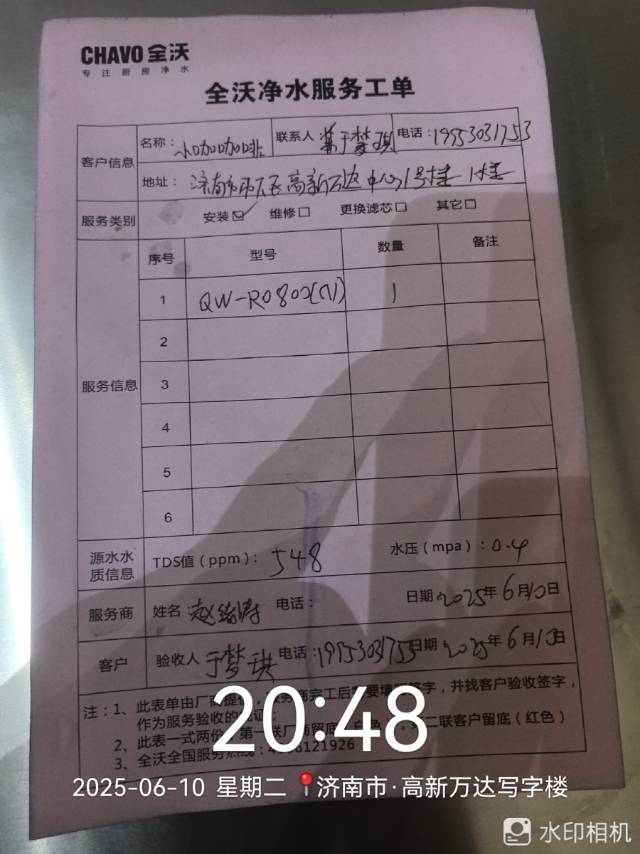 CHAVO 全沃
专注厨房净水
全沃净水服务工单
客户信息 名称： 小咖咖啡 联系人 于梦琪 电话：19553031753
地址： 济南市历下区高新万达中心1号楼 1楼
服务类别 安装☑ 维修□ 更换滤芯□ 其它□
服务信息 序号 型号 数量 备注
1 QW-R0800(N) 1
2
3
4
5
6
源水水质信息 TDS值（ppm）： 548 水压（mpa）：0.4
服务商 姓名 电话： 日期 2025年6月10日
客户 验收人 于梦琪 电话：19553031753 日期 2025年6月10日
注：1、此表单由厂商提供，服务商完工后需要填写签字，并找客户验收签字，
作为服务验收的凭证；
2、此表一式两份，第一联厂商留底（白色），第二联客户留底（红色）
3、全沃全国服务热线：4006121926
20:48
2025-06-10 星期二 济南市·高新万达写字楼
水印相机